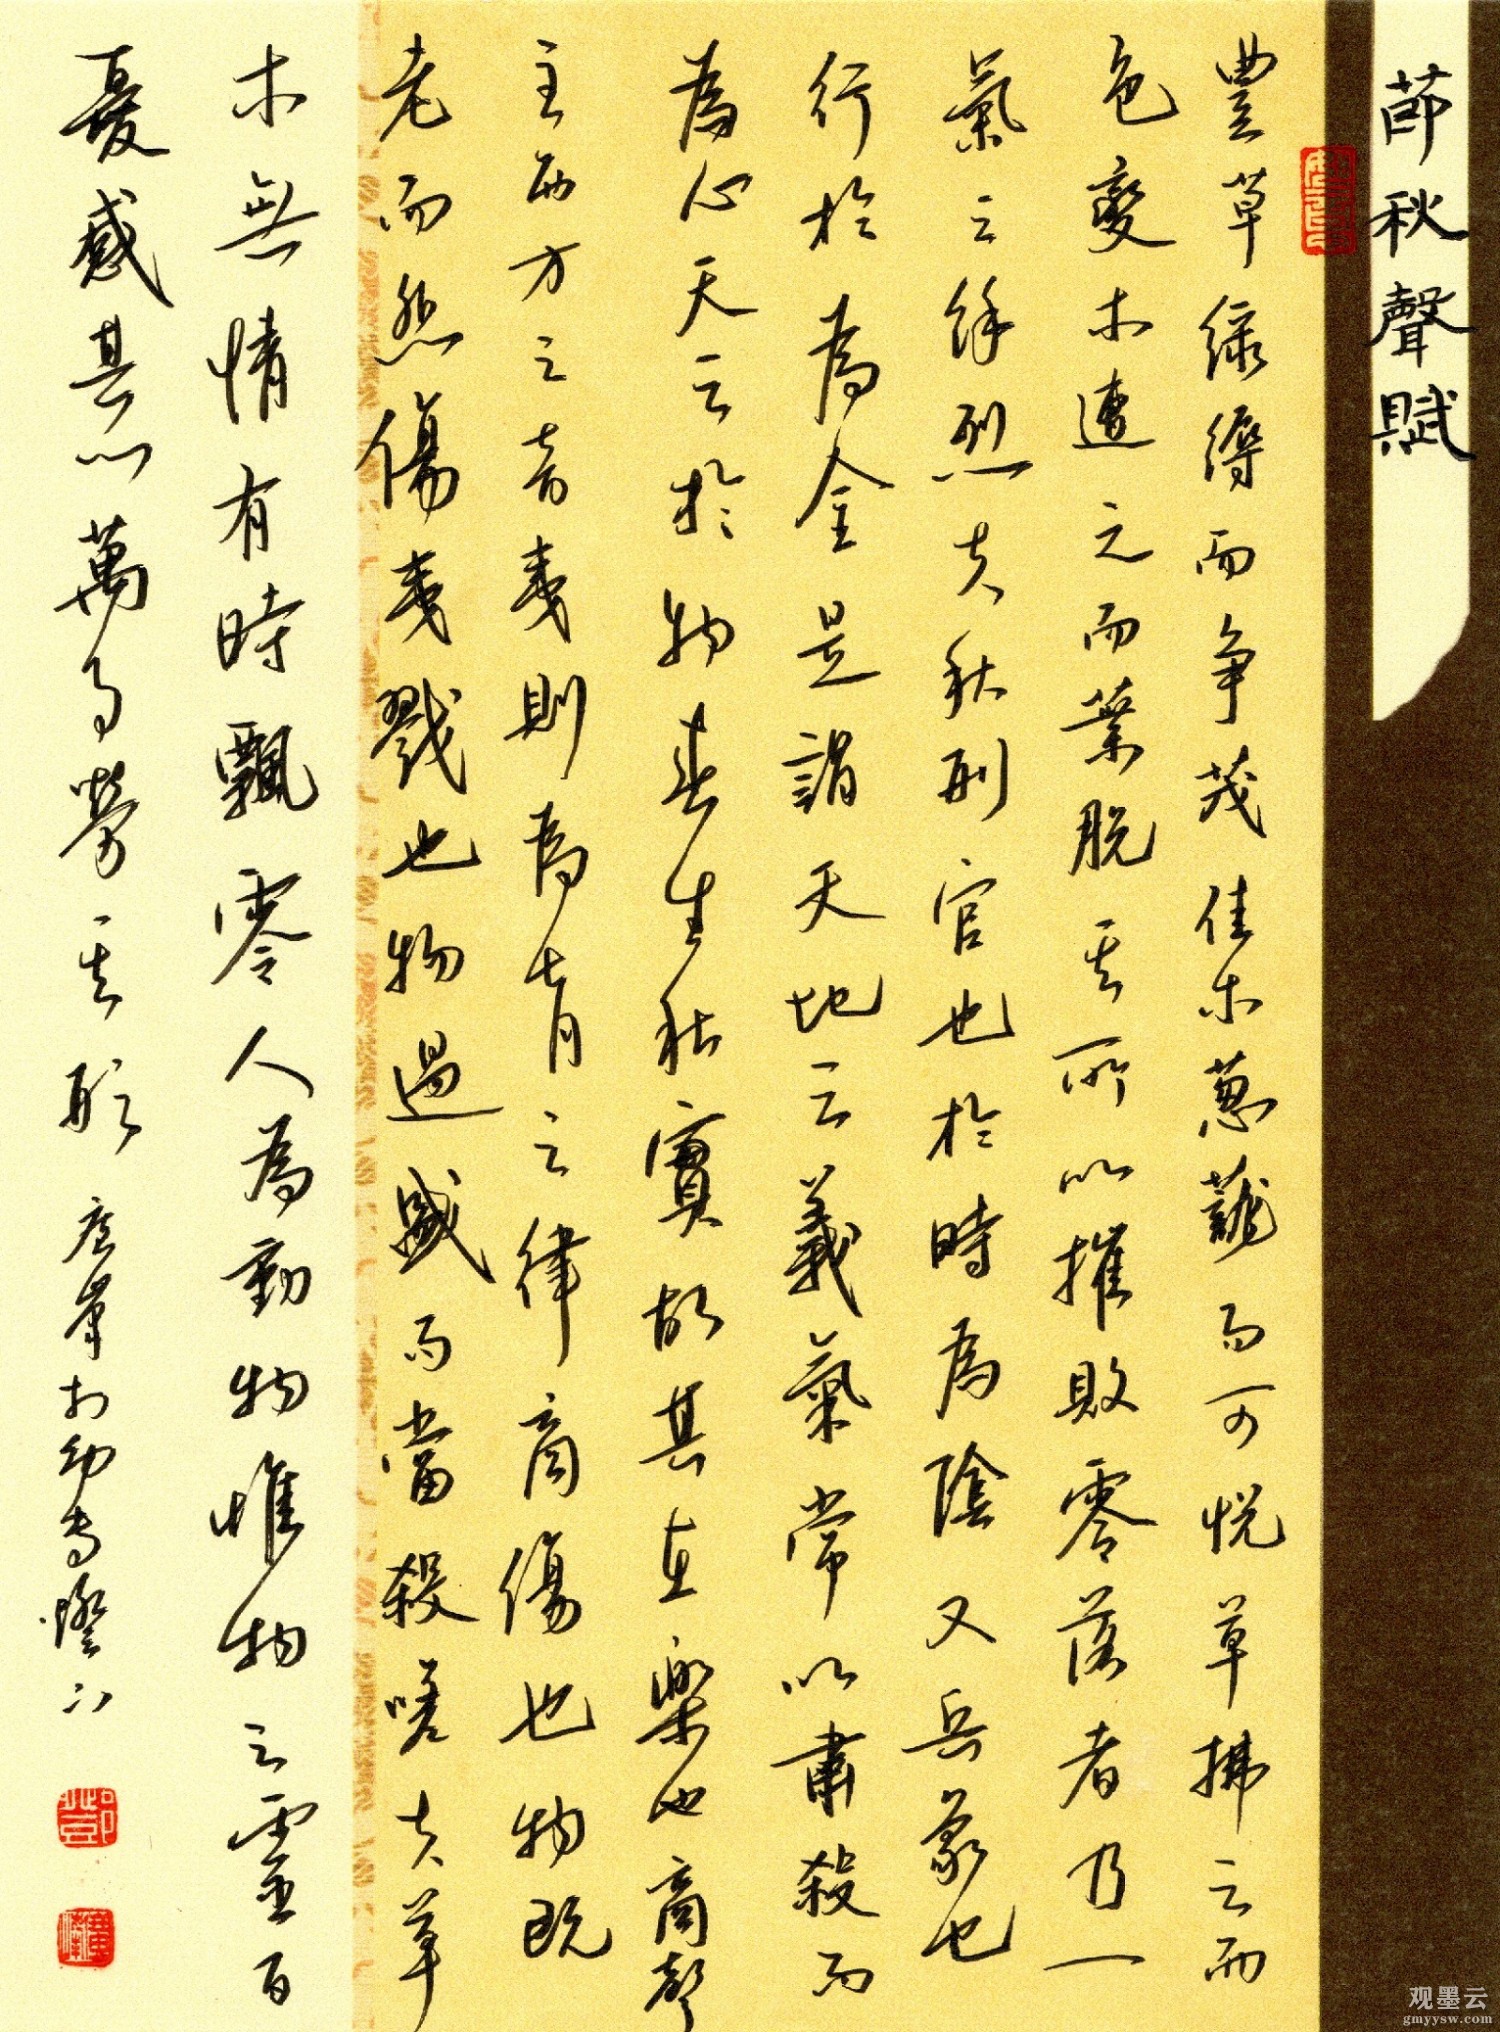 莭秋聲賦
豐草綠縟而争茂佳木葱蘢而可悅草拂之而
色變木遭之而葉脫其所以摧敗零落者乃一
氣之餘烈夫秋刑官也於時為陰又兵象也
行於為金是謂天地之義氣常以肅殺而
為心天之於物春生秋實故其在樂也商聲
主西方之音夷則為七月之律商傷也物既
老而悲傷夷戮也物過盛而當殺嗟夫草
木無情有時飄零人為動物惟物之靈百
憂感其心萬事勞其形 於幼專燈下
观墨云
gmyysw.com